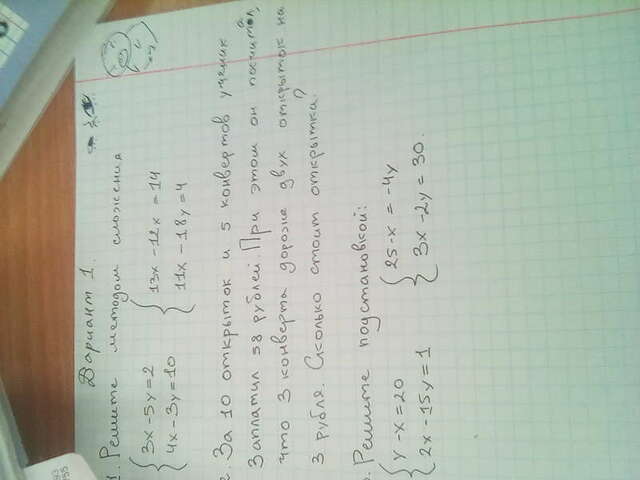 Вариант 1.
1. Решите методом сложения
{3x-5y=2 {13x-12x=14
{4x-3y=10 {11x-18y=4
2. За 10 открыток и 5 конвертов ученик
заплатил 58 рублей. При этом он посчитал,
что 3 конверта дороже двух открыток на
3 рубля. Сколько стоит открытка?
3. Решите подстановкой:
{y-x=20 {25-x=-4y
{2x-15y=1 {3x-2y=30.